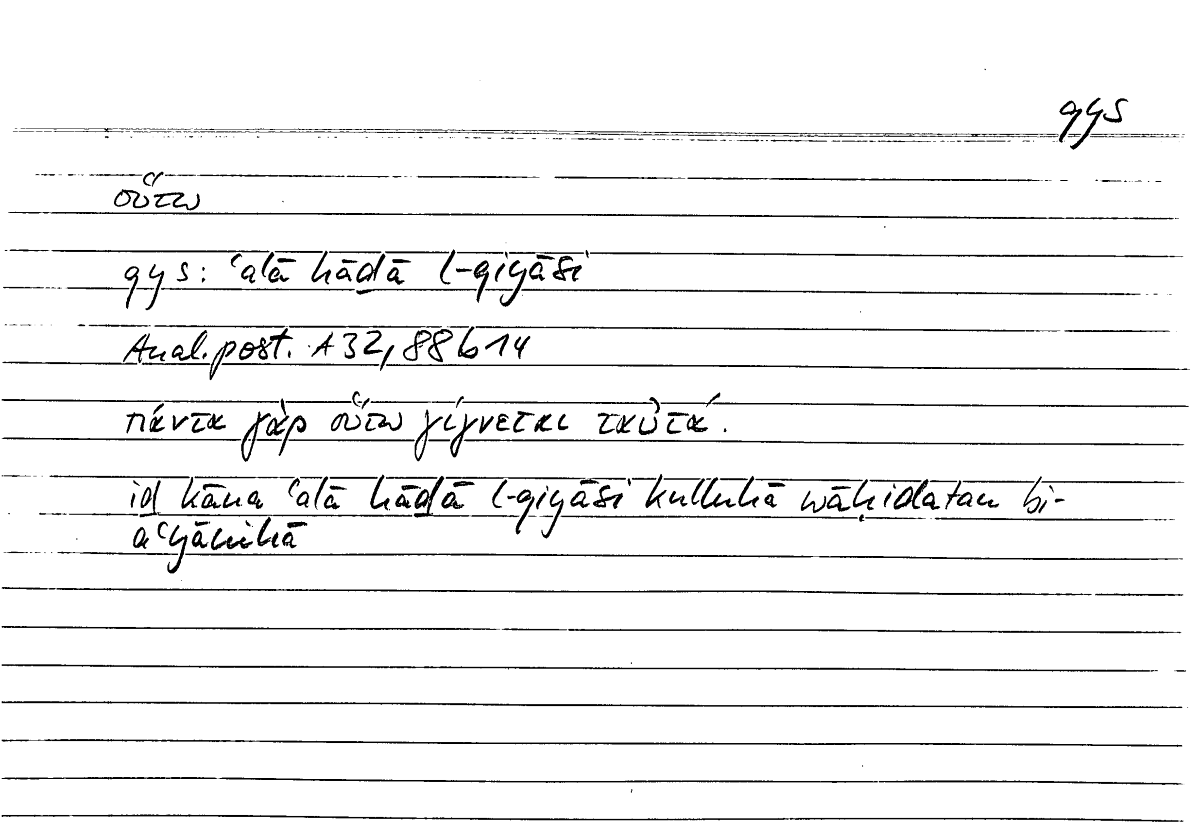 qys
οὕτω
qys: ʿalā hāḏā l-qiyāsi
Anal.post. A32,88b14
πάντα γὰρ οὕτω γίγνεται ταὐτά.
iḏ kāna ʿalā hāḏā l-qiyāsi kulluhā wāḥidatan bi-
aʿyānihā